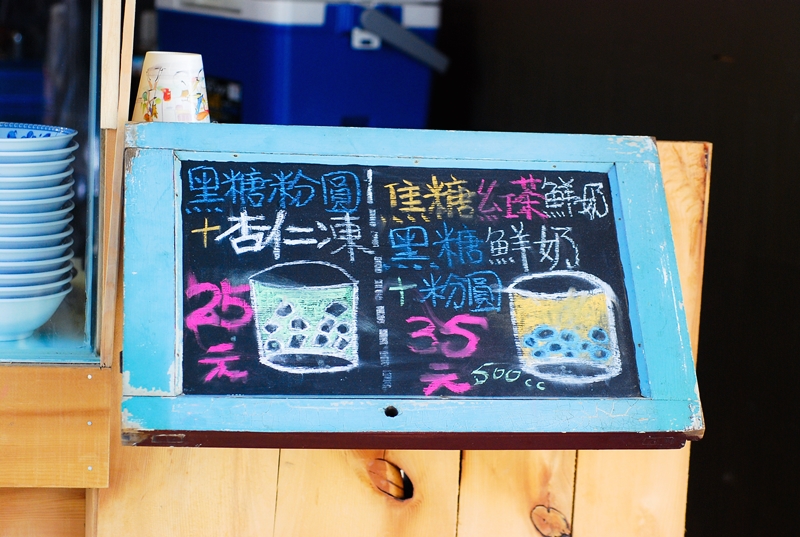 黑糖粉圓
+杏仁凍
25
元
焦糖紅茶鮮奶
黑糖鮮奶
+粉圓
35
元 500cc